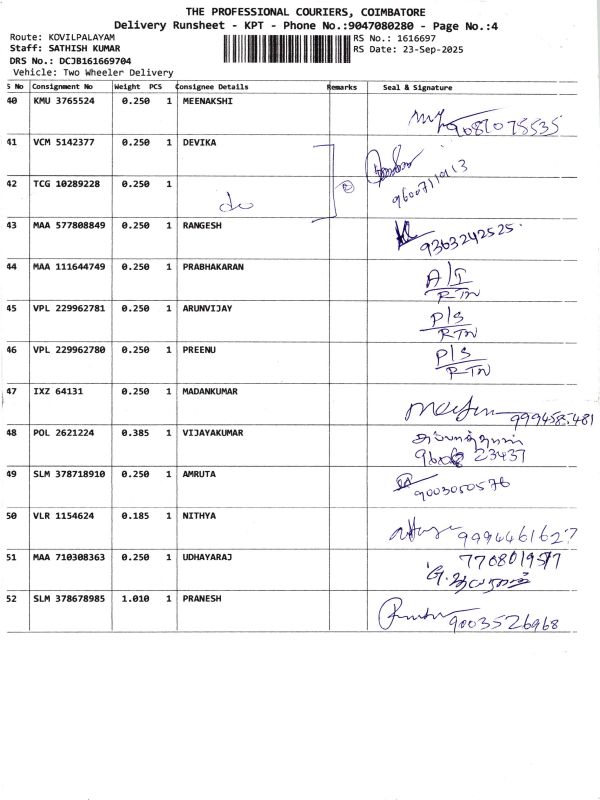 THE PROFESSIONAL COURIERS, COIMBATORE
Delivery Runsheet - KPT - Phone No.:9047080280 - Page No.:4
Route: KOVILPALAYAM
RS No.: 1616697
Staff: SATHISH KUMAR
RS Date: 23-Sep-2025
DRS No.: DCJB161669704
Vehicle: Two Wheeler Delivery
S No Consignment No Weight PCS Consignee Details Remarks Seal & Signature
40 KMU 3765524 0.250 1 MEENAKSHI
9087075535
41 VCM 5142377 0.250 1 DEVIKA
42 TCG 10289228 0.250 1 do
9600711913
43 MAA 577808849 0.250 1 RANGESH
9363242525
44 MAA 111644749 0.250 1 PRABHAKARAN A/I
RTN
45 VPL 229962781 0.250 1 ARUNVIJAY P/S
RTN
46 VPL 229962780 0.250 1 PREENU P/S
RTN
47 IXZ 64131 0.250 1 MADANKUMAR
48 POL 2621224 0.385 1 VIJAYAKUMAR
23437
49 SLM 378718910 0.250 1 AMRUTA
9003050576
50 VLR 1154624 0.185 1 NITHYA
9994461627
51 MAA 710308363 0.250 1 UDHAYARAJ
52 SLM 378678985 1.010 1 PRANESH
9003526968